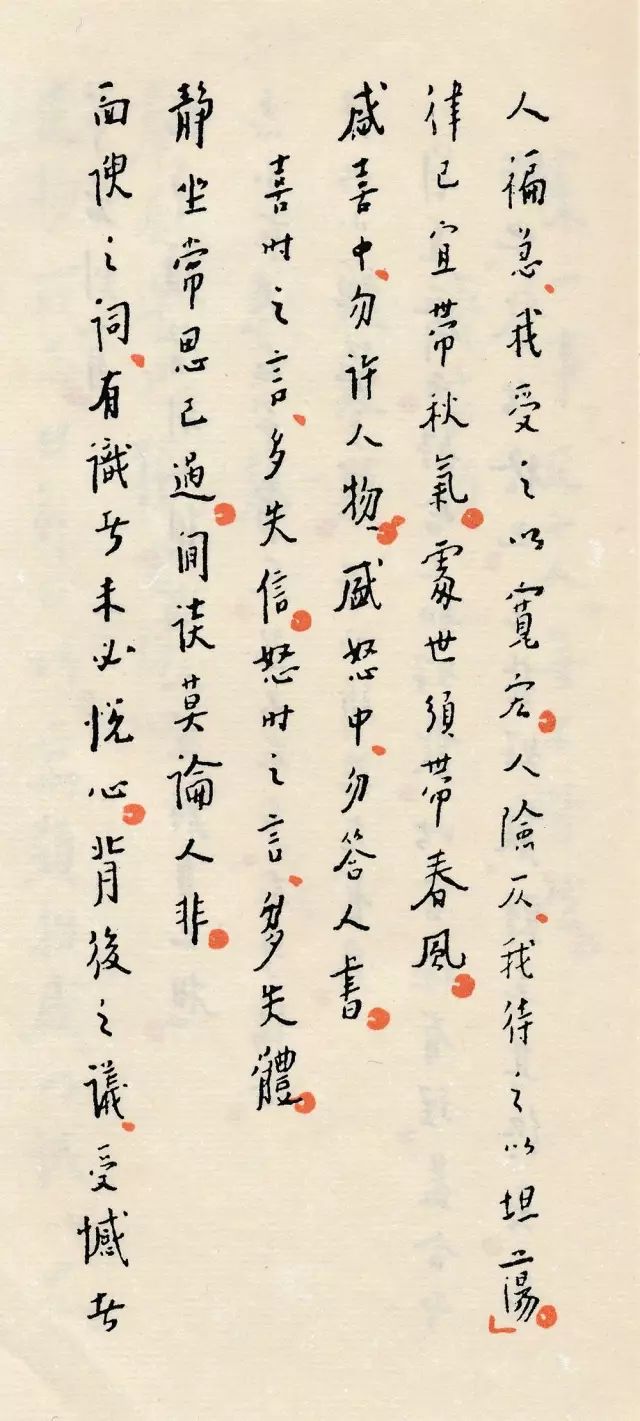 人褊急、我受之以寬宏。人險仄、我待之以坦蕩。」
律己宜帶秋氣。處世須帶春風。
盛喜中、勿許人物。盛怒中、勿答人書。
喜时之言、多失信。怒时之言、多失體。
静坐常思己過。閒談莫論人非。
面諛之词、有識者未必悦心。背後之議、受憾者